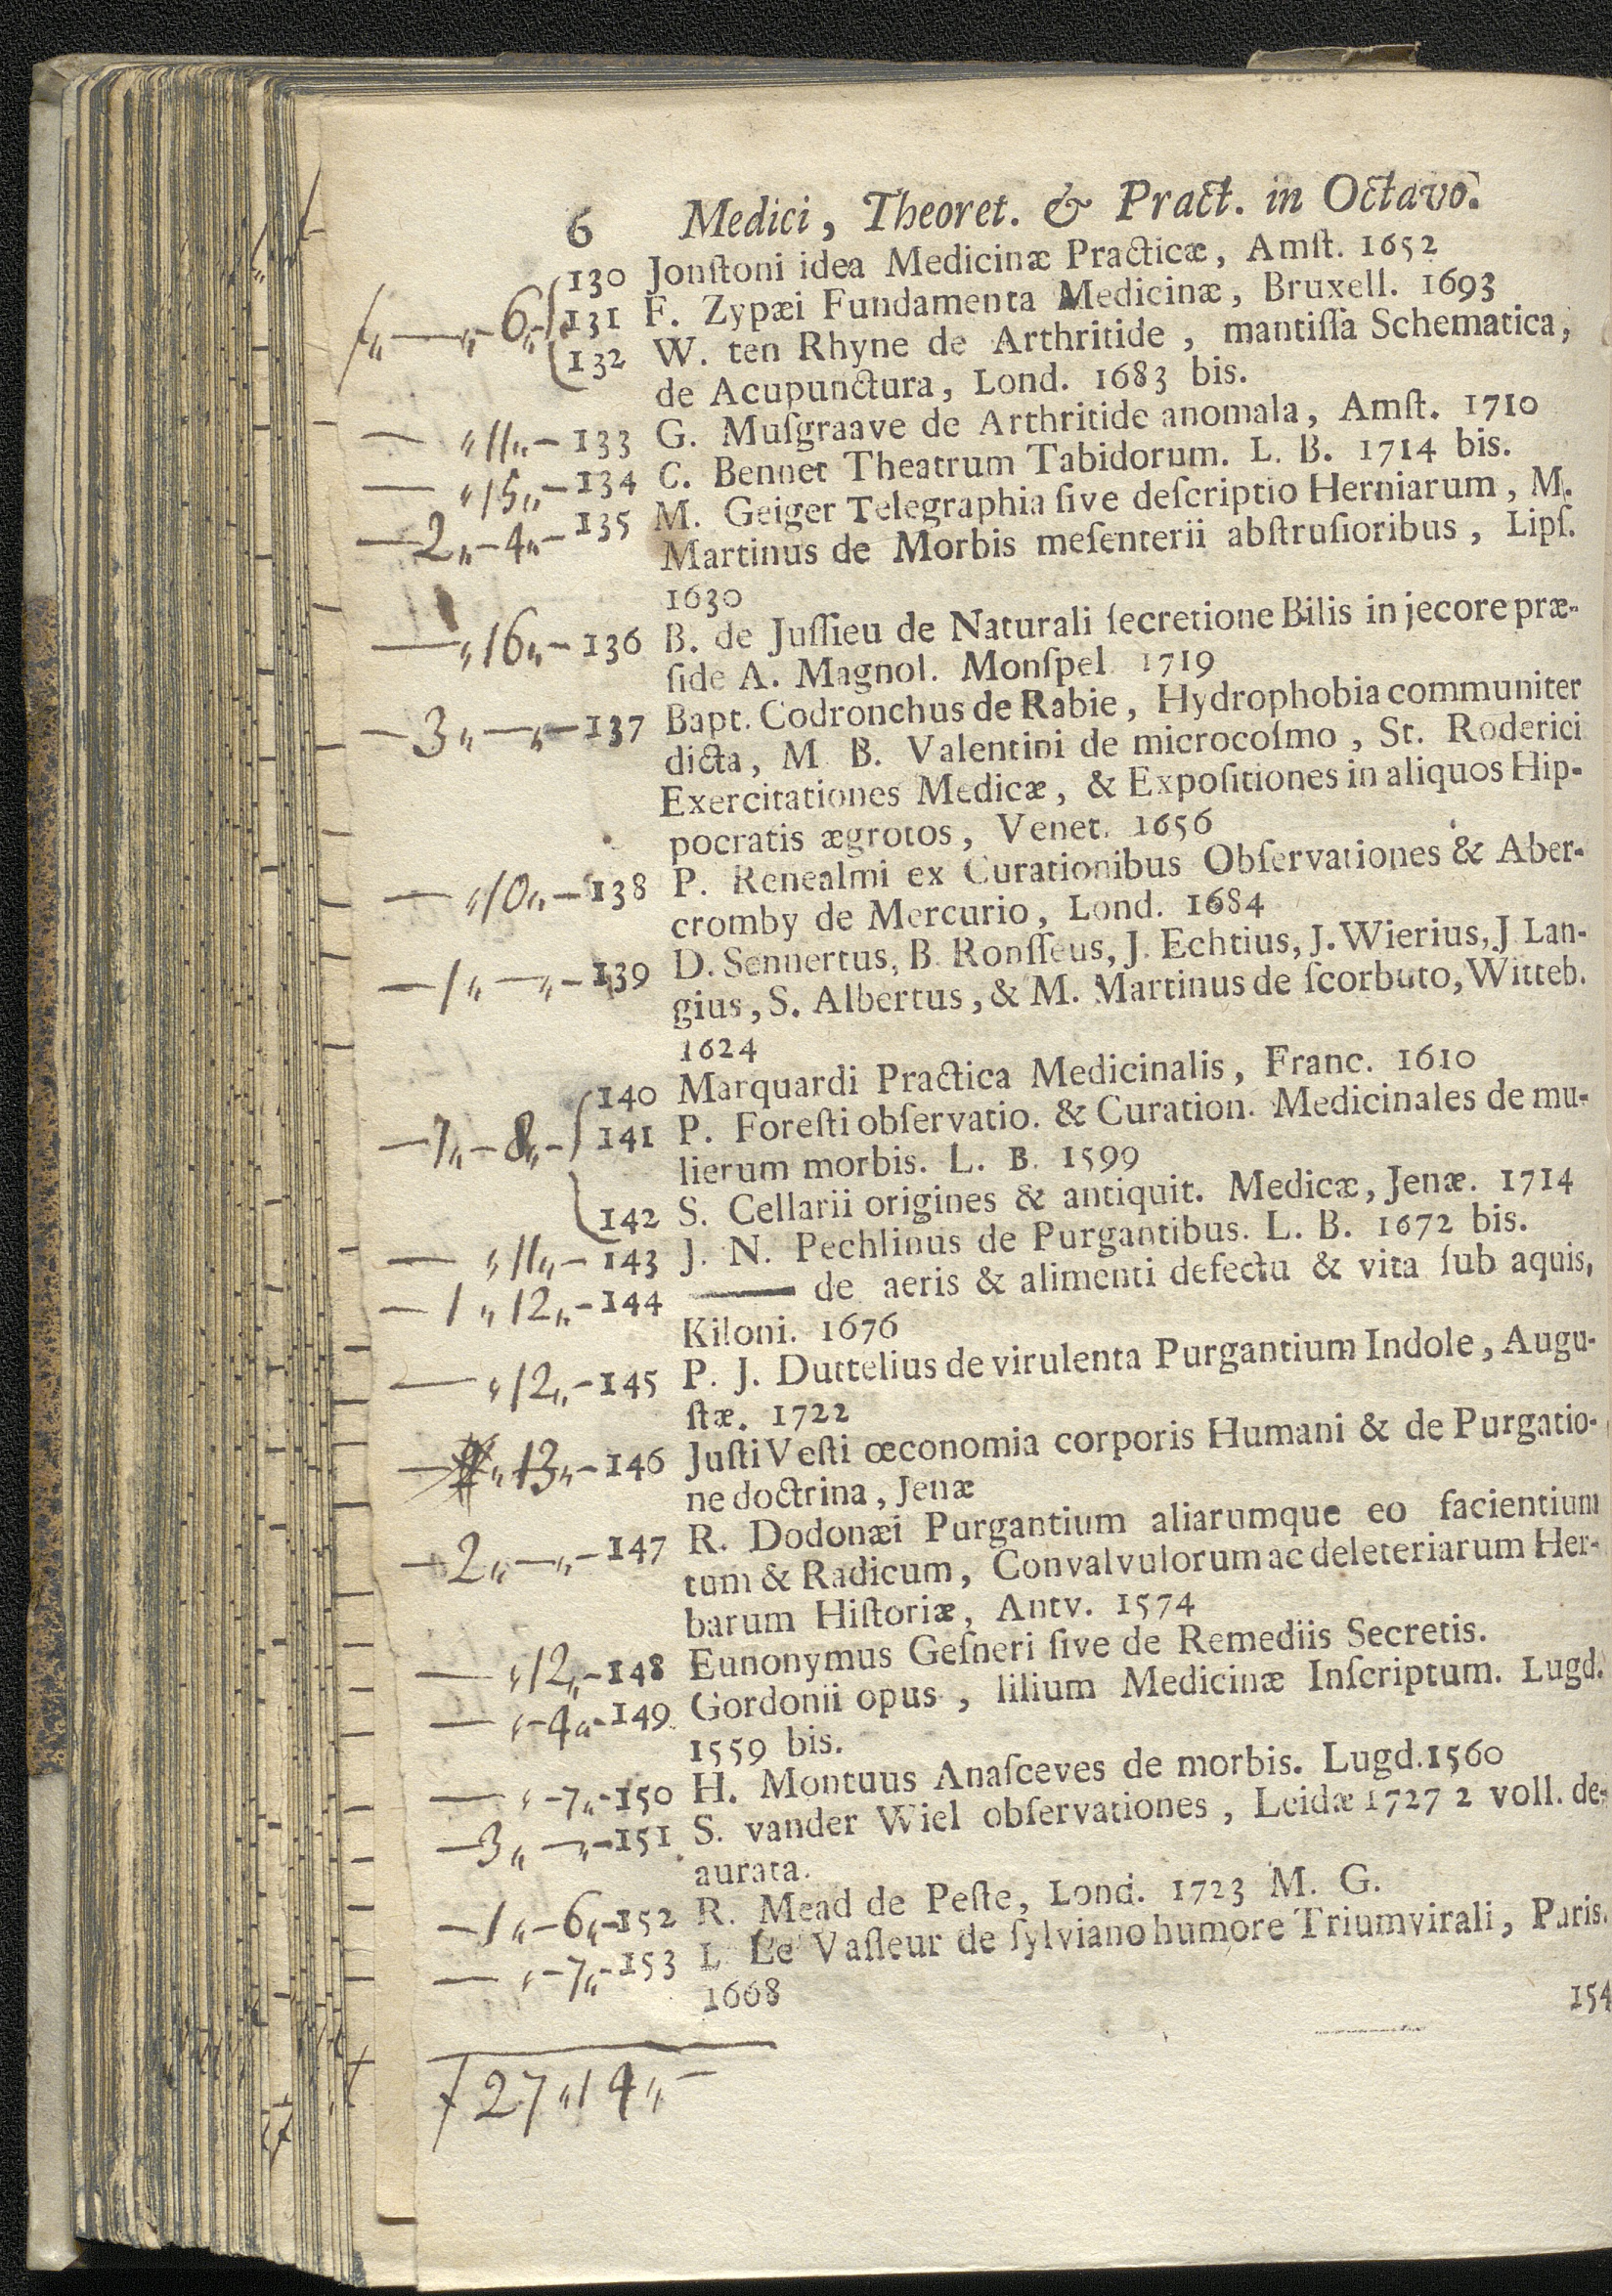 6 Medici, Theoret. & Pract. in Octavo.
130 Jonſtoni idea Medicinæ Practicæ, Amſt. 1652
ƒ„—„-6„- 131 F. Zypæi Fundamenta Medicinæ, Bruxell. 1693
132 W. ten Rhyne de Arthritide, mantiſſa Schematica,
de Acupunctura, Lond. 1683 bis.
— „11„- 133 G. Muſgraave de Arthritide anomala, Amſt. 1710
— „15„- 134 C. Bennet Theatrum Tabidorum. L. B. 1714 bis.
—2„-4„- 135 M. Geiger Telegraphia ſive deſcriptio Herniarum, M.
Martinus de Morbis meſenterii abſtruſioribus, Lipſ.
1630
—„16„- 136 B. de Juſſieu de Naturali ſecretione Bilis in jecore præ-
ſide A. Magnol. Monſpel 1719
—3„—„- 137 Bapt. Codronchus de Rabie, Hydrophobia communiter
dicta, M B. Valentini de microcoſmo, St. Roderici
Exercitationes Medicæ, & Expoſitiones in aliquos Hip-
pocratis ægrotos, Venet. 1656
— „10„- 138 P. Renealmi ex Curationibus Obſervationes & Aber-
cromby de Mercurio, Lond. 1684
—1„—„- 139 D. Sennertus, B. Ronſſeus, J. Echtius, J. Wierius, J Lan-
gius, S. Albertus, & M. Martinus de ſcorbuto, Witteb.
1624
140 Marquardi Practica Medicinalis, Franc. 1610
—7„-8„- 141 P. Foreſti obſervatio. & Curation. Medicinales de mu-
lierum morbis. L. B. 1599
142 S. Cellarii origines & antiquit. Medicæ, Jenæ. 1714
— „11„- 143 J. N. Pechlinus de Purgantibus. L. B. 1672 bis.
—1„12„- 144 —— de aeris & alimenti defectu & vita ſub aquis,
Kiloni. 1676
— „12„- 145 P. J. Duttelius de virulenta Purgantium Indole, Augu-
ſtæ. 1722
— „13„- 146 Juſti Veſti œconomia corporis Humani & de Purgatio-
ne doctrina, Jenæ
—2„—„- 147 R. Dodonæi Purgantium aliarumque eo facientium
tum & Radicum, Convalvulorum ac deleteriarum Her-
barum Hiſtoriæ, Antv. 1574
— „12„- 148 Eunonymus Geſneri ſive de Remediis Secretis.
— „-4„- 149 Gordonii opus, lilium Medicinæ Inſcriptum. Lugd.
1559 bis.
— „-7„- 150 H. Montuus Anaſceves de morbis. Lugd. 1560
—3„—„- 151 S. vander Wiel obſervationes, Leidæ 1727 2 voll. de-
aurata.
—1„-6„- 152 R. Mead de Peſte, Lond. 1723 M. G.
— „-7„- 153 L Le Vaſſeur de ſylviano humore Triumvirali, Paris.
1668
154
ƒ27„14„-